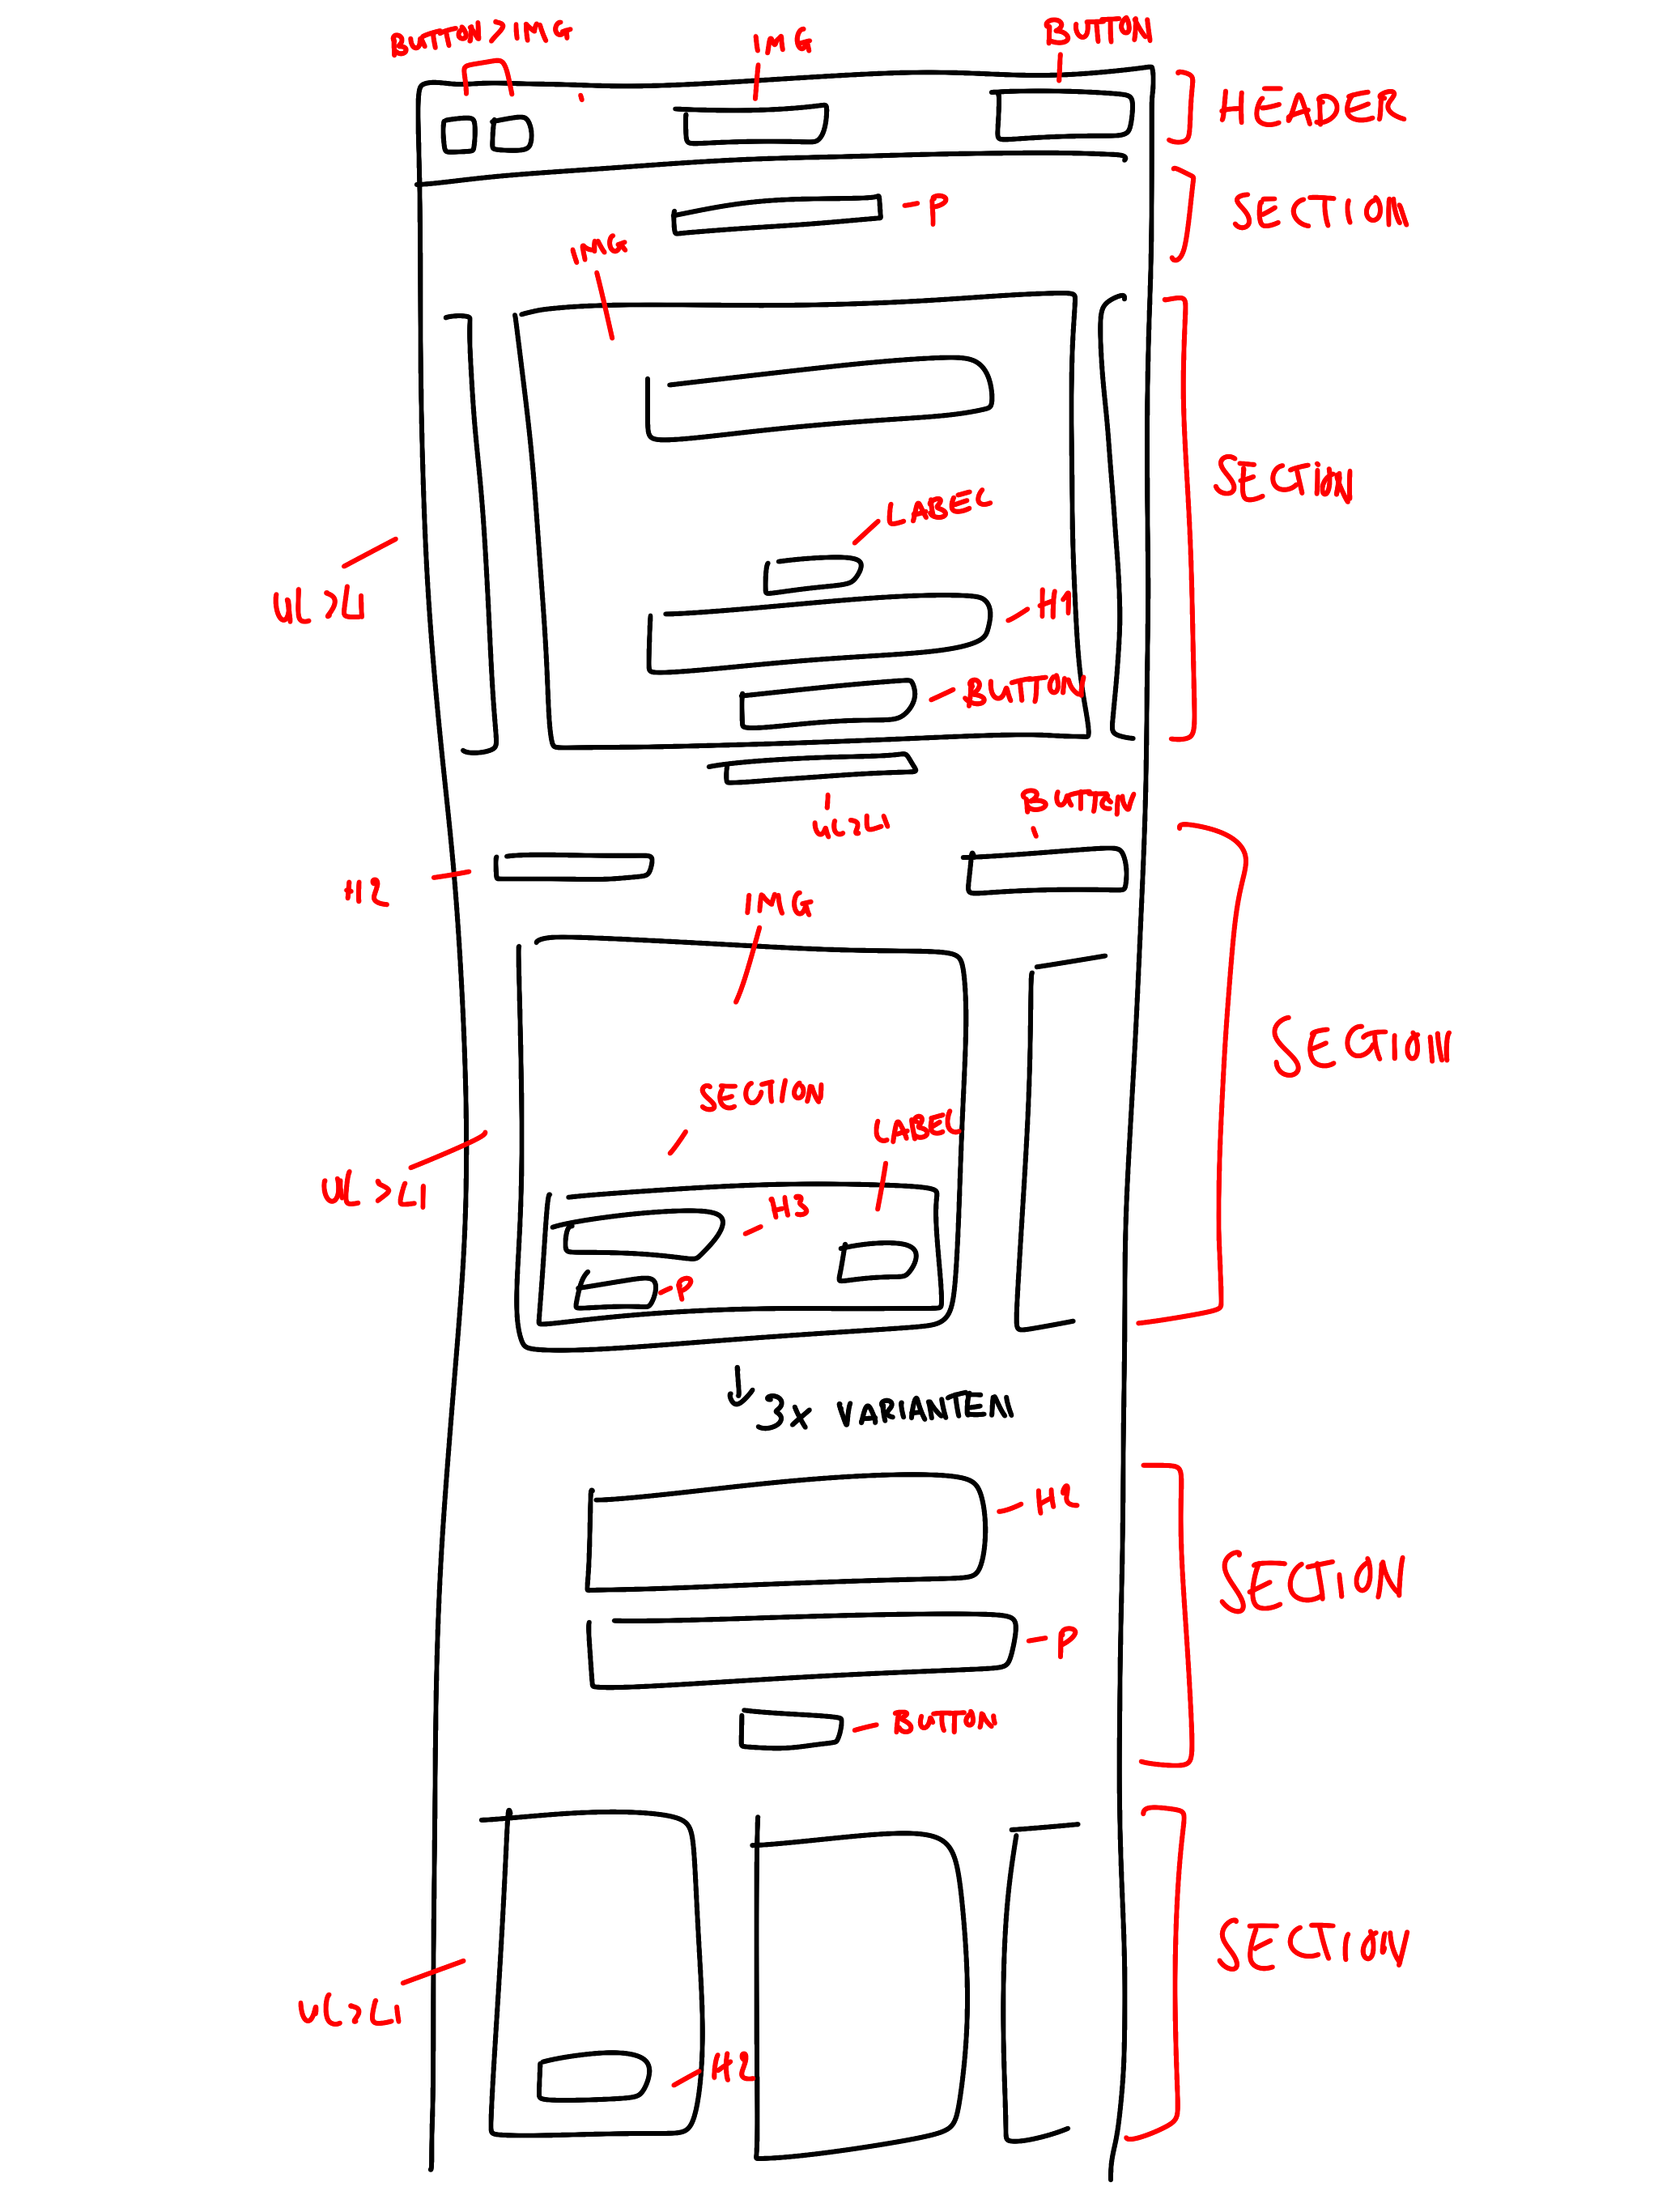 BUTTON>IMG
IMG
BUTTON
HEADER
P
SECTION
IMG
SECTION
LABEL
UL>LI
H1
BUTTON
UL>LI
BUTTON
H2
IMG
SECTION
SECTION
LABEL
UL>LI
H3
P
↓ 3x VARIANTEN
H2
SECTION
P
BUTTON
SECTION
UL>LI
H2